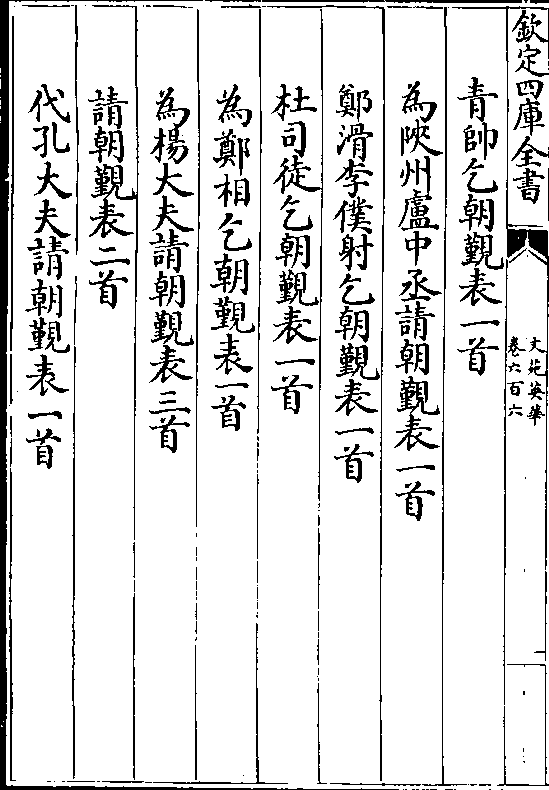 欽定四庫全書
文苑英華
卷六百六
青帥乞朝覲表一首
為陜州盧中丞請朝覲表一首
鄭滑李僕射乞朝覲表一首
杜司徒乞朝覲表一首
為鄭相乞朝覲表一首
為楊大夫請朝覲表三首
請朝覲表二首
代孔大夫請朝覲表一首